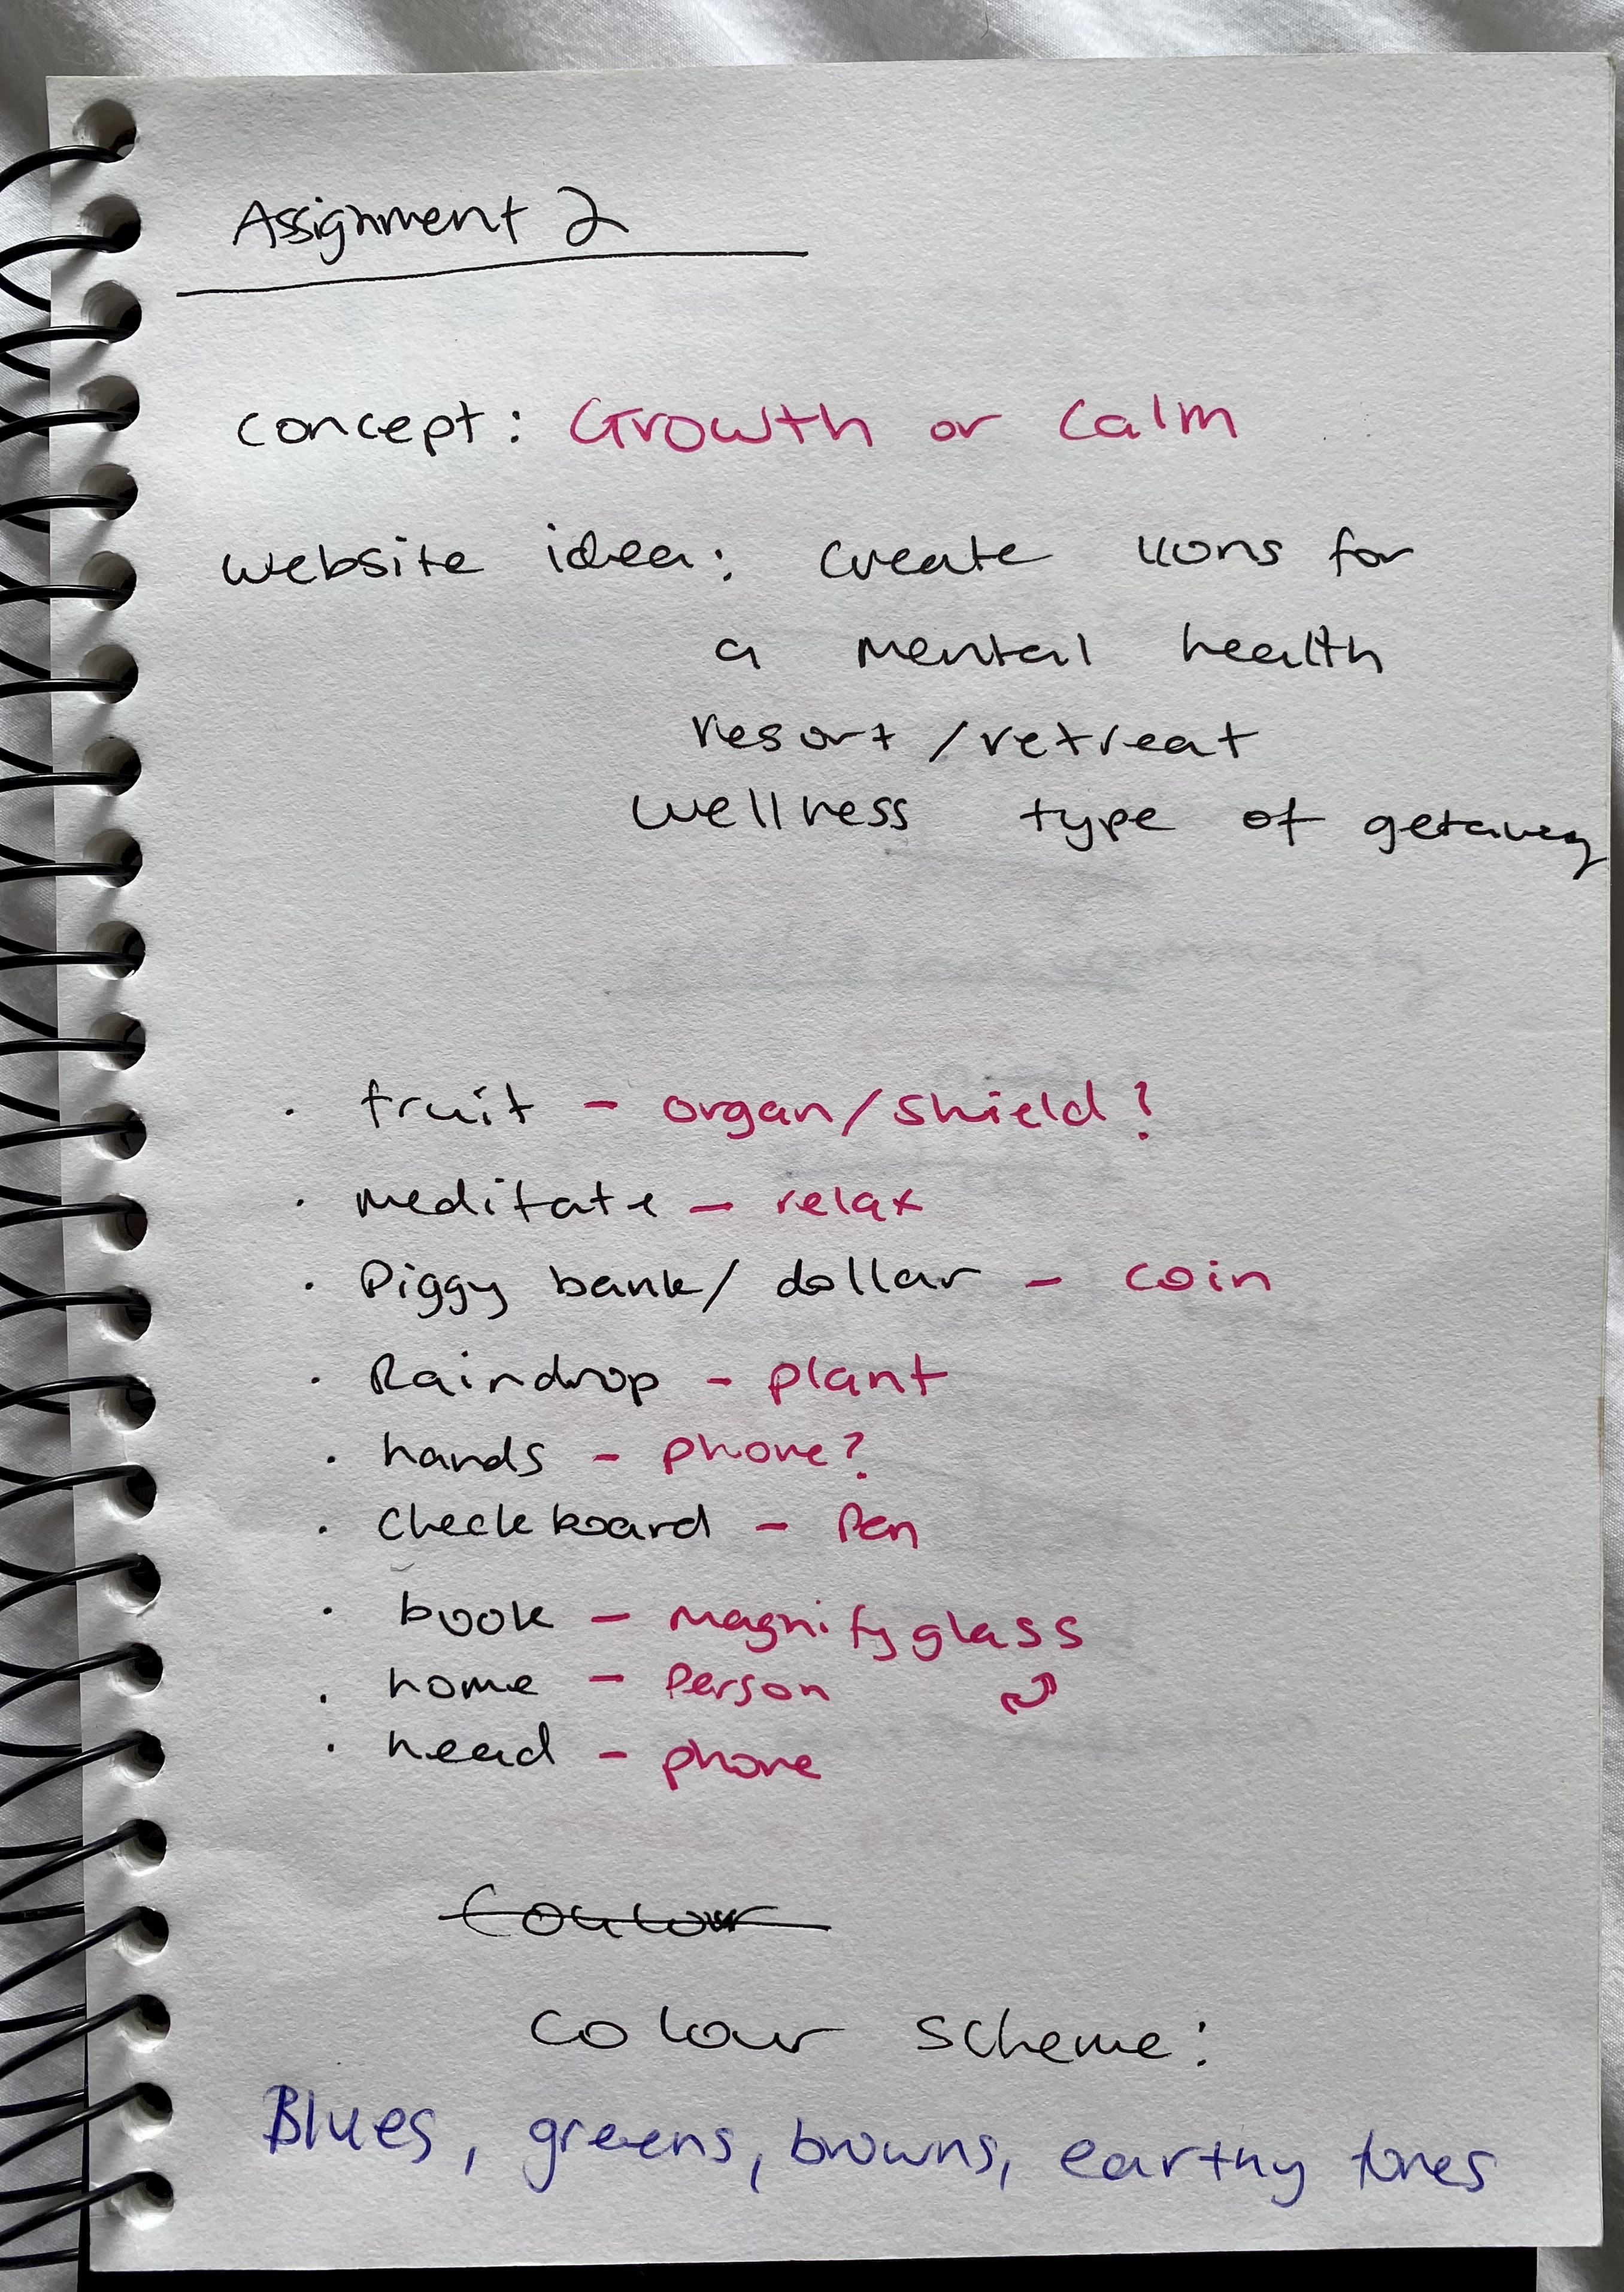 Assignment 2
concept: Growth or Calm
website idea: create icons for
a mental health
resort / retreat
wellness type of getaway
· fruit - organ/shield?
· meditate - relax
· Piggy bank/ dollar - coin
· Raindrop - plant
· hands - phone?
· Checkboard - Pen
· book - magnifyglass
· home - Person
· head - phone
colour scheme:
Blues, greens, browns, earthy tones